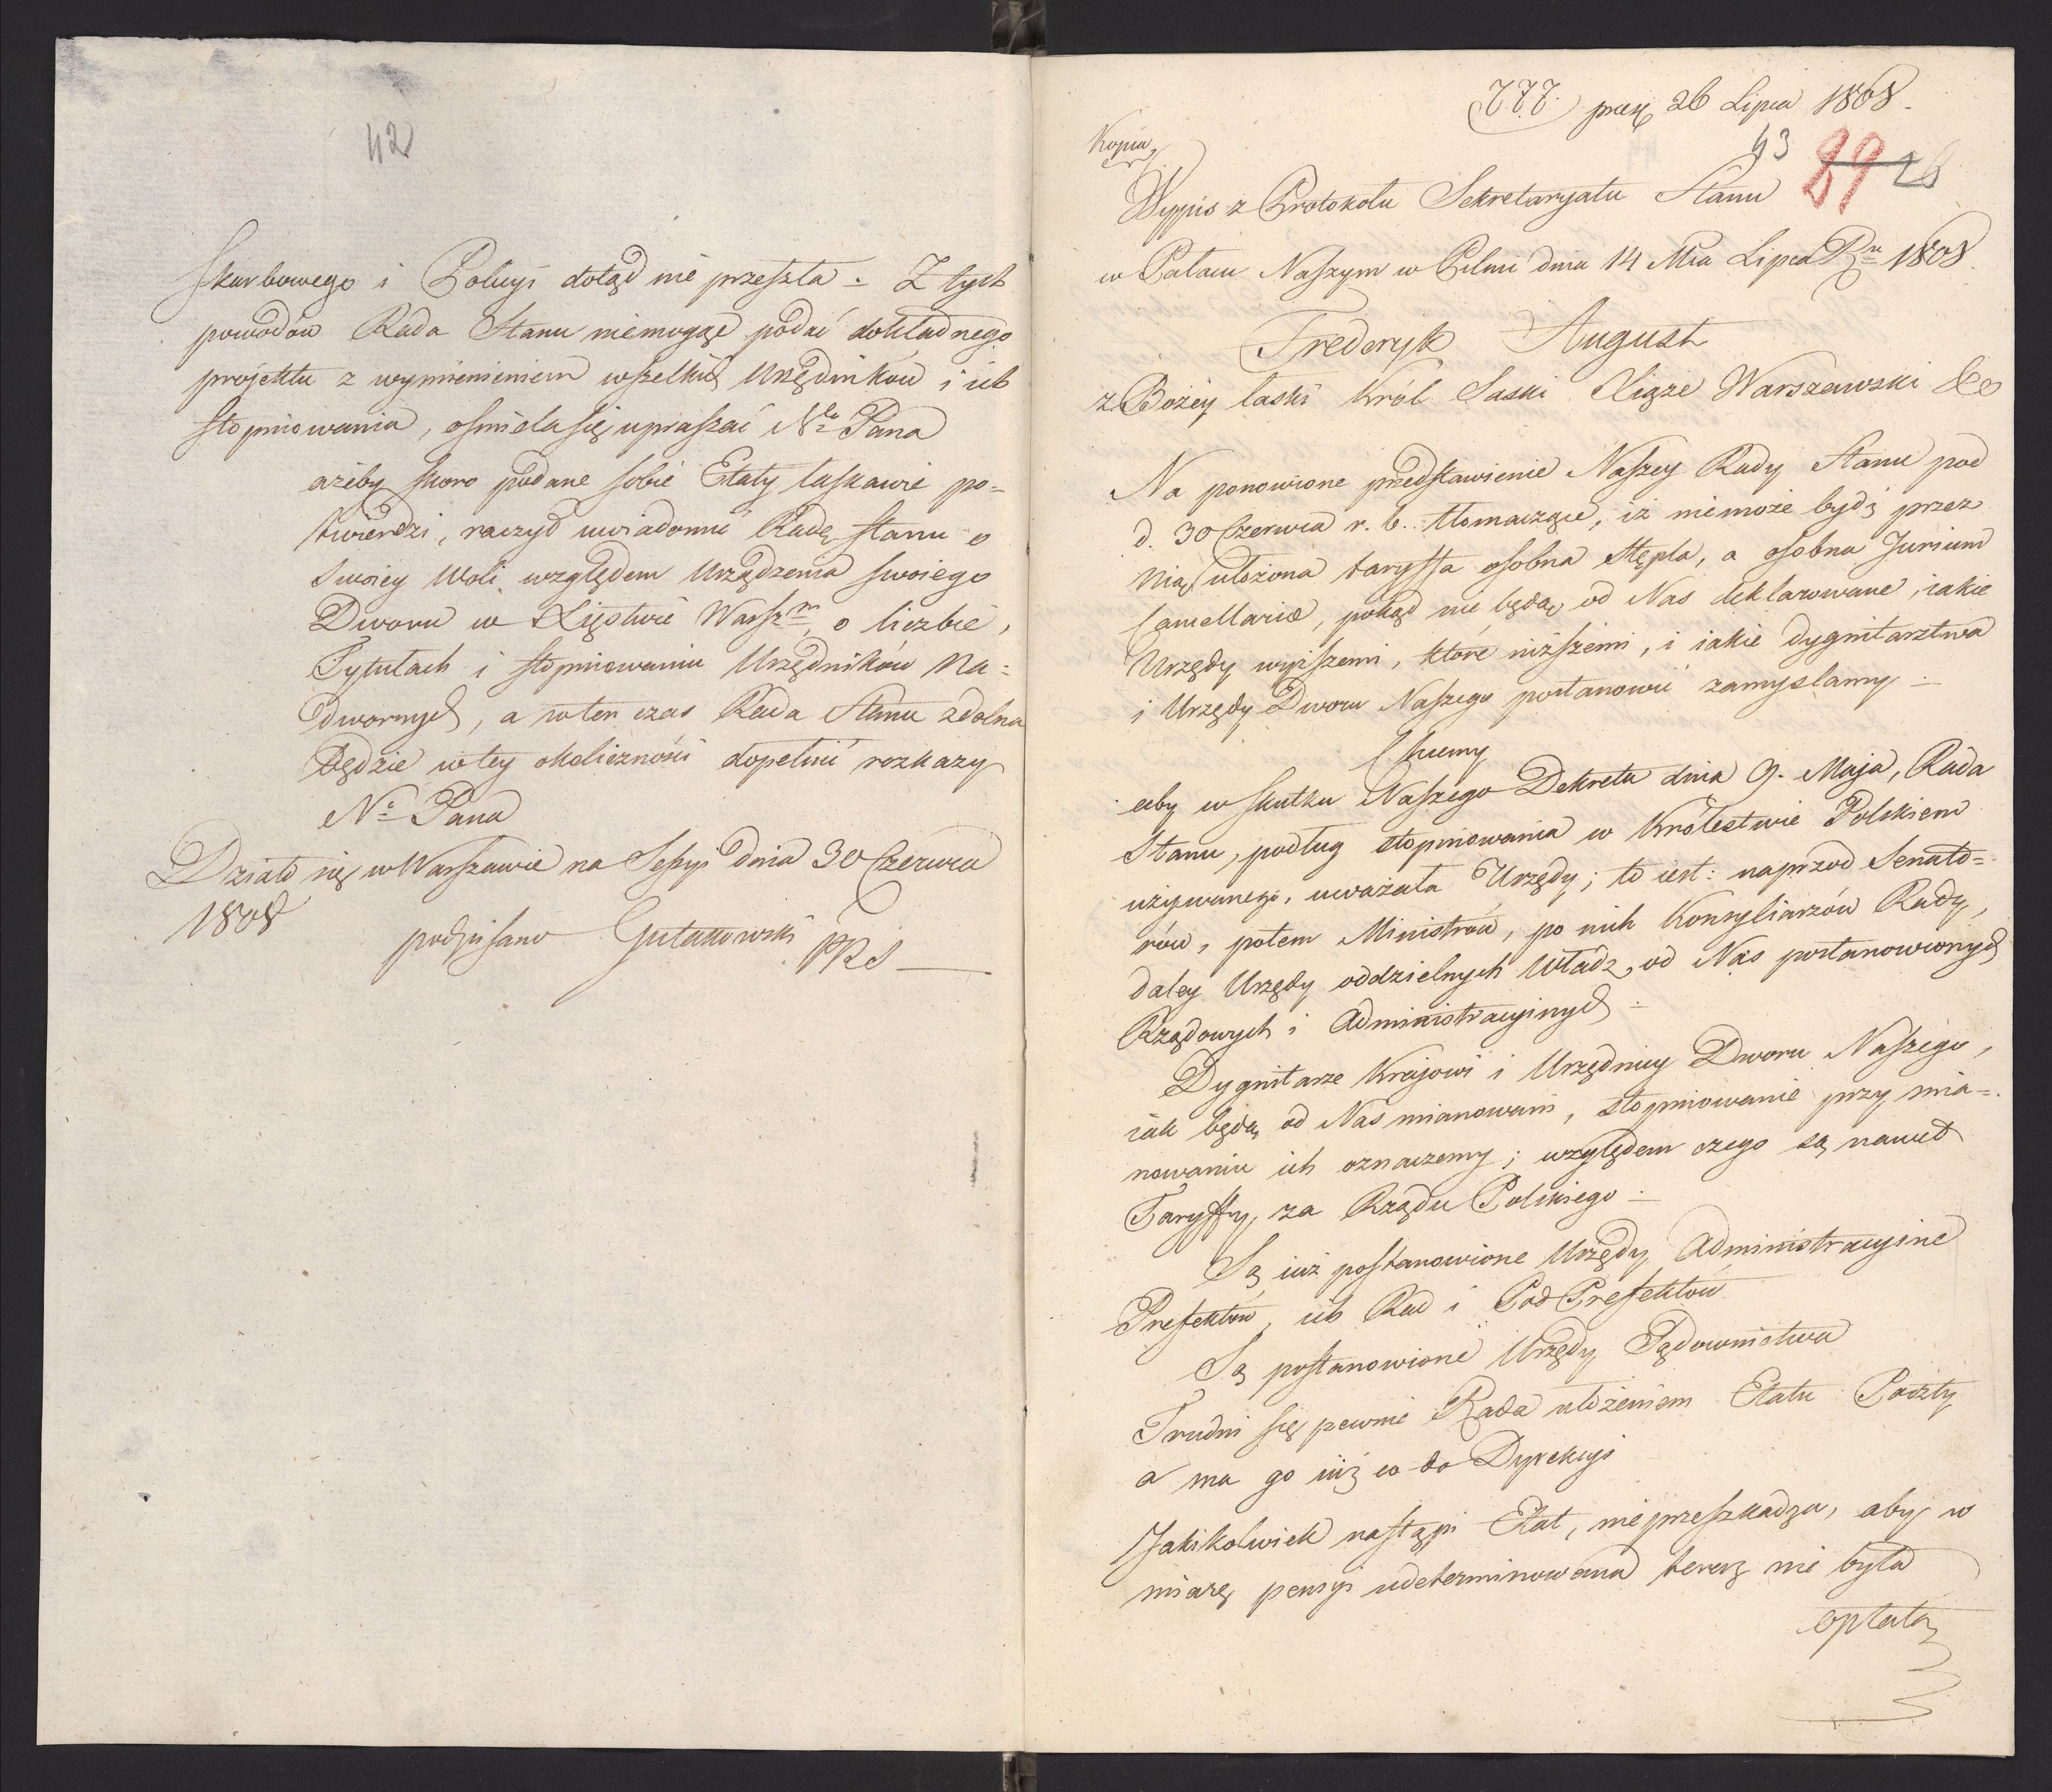 42
Skarbowego i Policyi dotąd nie przeszła. Z tych
powodów Rada Stanu niemogąc podać dokładnego
projektu z wymienieniem wszelkich Urzędników i ich
stopniowania, ośmiela się upraszać Ngo Pana
ażeby skoro podane sobie Etaty łaskawie po-
twierdzi, raczył uwiadomić Radę Stanu o
Swoiey Woli względem Urządzenia swoiego
Dworu w Xięstwie Warszm, o liczbie,
Tytułach i stopniowaniu Urzędników Na-
dwornych, a w ten czas Rada Stanu zdolna
będzie w tey okoliczności dopełnić rozkazy
No Pana
Działo się w Warszawie na Sessyi dnia 30 Czerwca
1808
podpisano Gutakowski PRS
777. 26 Lipca 1808.
Kopia
43 29 28
Wypis z Protokołu Sekretaryatu Stanu
w Pałacu Naszym w Pilni dnia 14 Mca Lipca Ru 1808.
Frederyk August
z Bożey łaski Król Saski Xiąże Warszawski &c
Na ponowione przedstawienie Naszey Rady Stanu pod
d. 30 Czerwca r. b. tłomaczące, iż niemoże bydź przez
Nią ułożona taryffa osobna Stępla, a osobna Jurium
Cancellariae, pokąd nie będą od Nas deklarowane, iakie
Urzędy wyższemi, które niższemi, i iakie dygnitarztwa
i Urzędy Dworu Naszego postanowić zamyślamy.
Chcemy
aby w skutku Naszego Dekretu dnia 9. Maja, Rada
Stanu, podług stopniowania w Królestwie Polskiem
używanego, uważała Urzędy; to iest: naprzod Senato-
rów, potem Ministrów, po nich Konsyliarzów Rady,
daley Urzędy oddzielnych Władz, od Nas postanowionych
Rządowych i Administracyinych.
Dygnitarze Krajowi i Urzędnicy Dworu Naszego,
iak będą od Nas mianowani, stopniowanie przy mia-
nowaniu ich oznaczemy; względem czego są nawet
Taryffy, za Rządu Polskiego.
Są iuż postanowione Urzędy Administracyine
Prefektów, ich Rad i Pod Prefektów
Są postanowione Urzędy Sądownictwa
Trudni się pewnie Rada ułożeniem Etatu Poczty
a ma go iuż co do Dyrekcyi
Jakikolwiek nastąpi Etat, nie przeszkadza, aby w
miarę pensyi udeterminowana teraz nie była
opłata